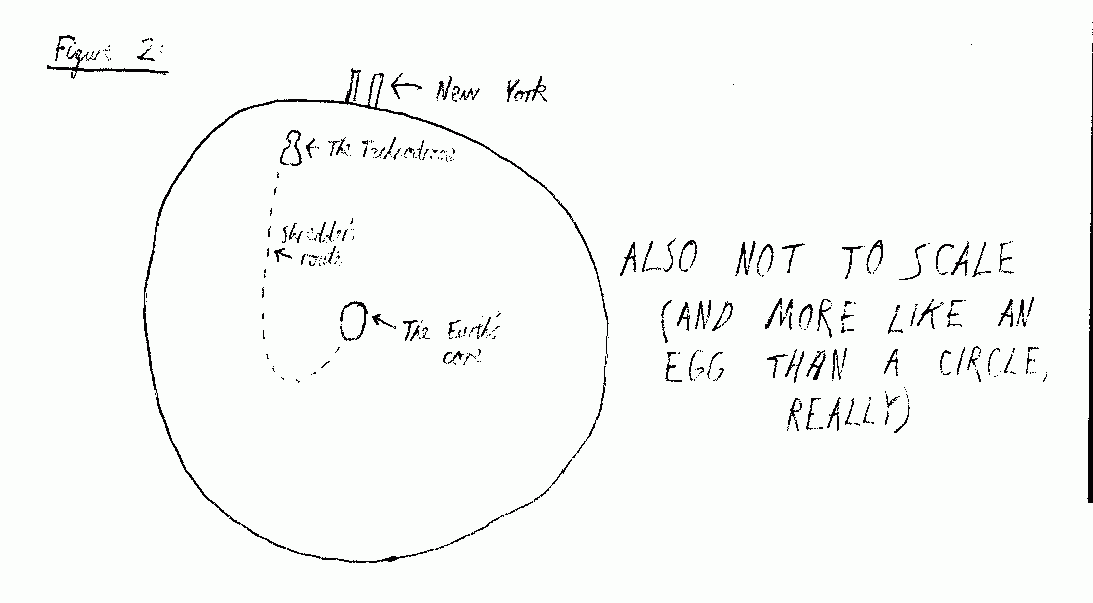 Figure 2:
New York
The Technodrome
Shredder's
route
The Earth's
core
ALSO NOT TO SCALE
(AND MORE LIKE AN
EGG THAN A CIRCLE,
REALLY)